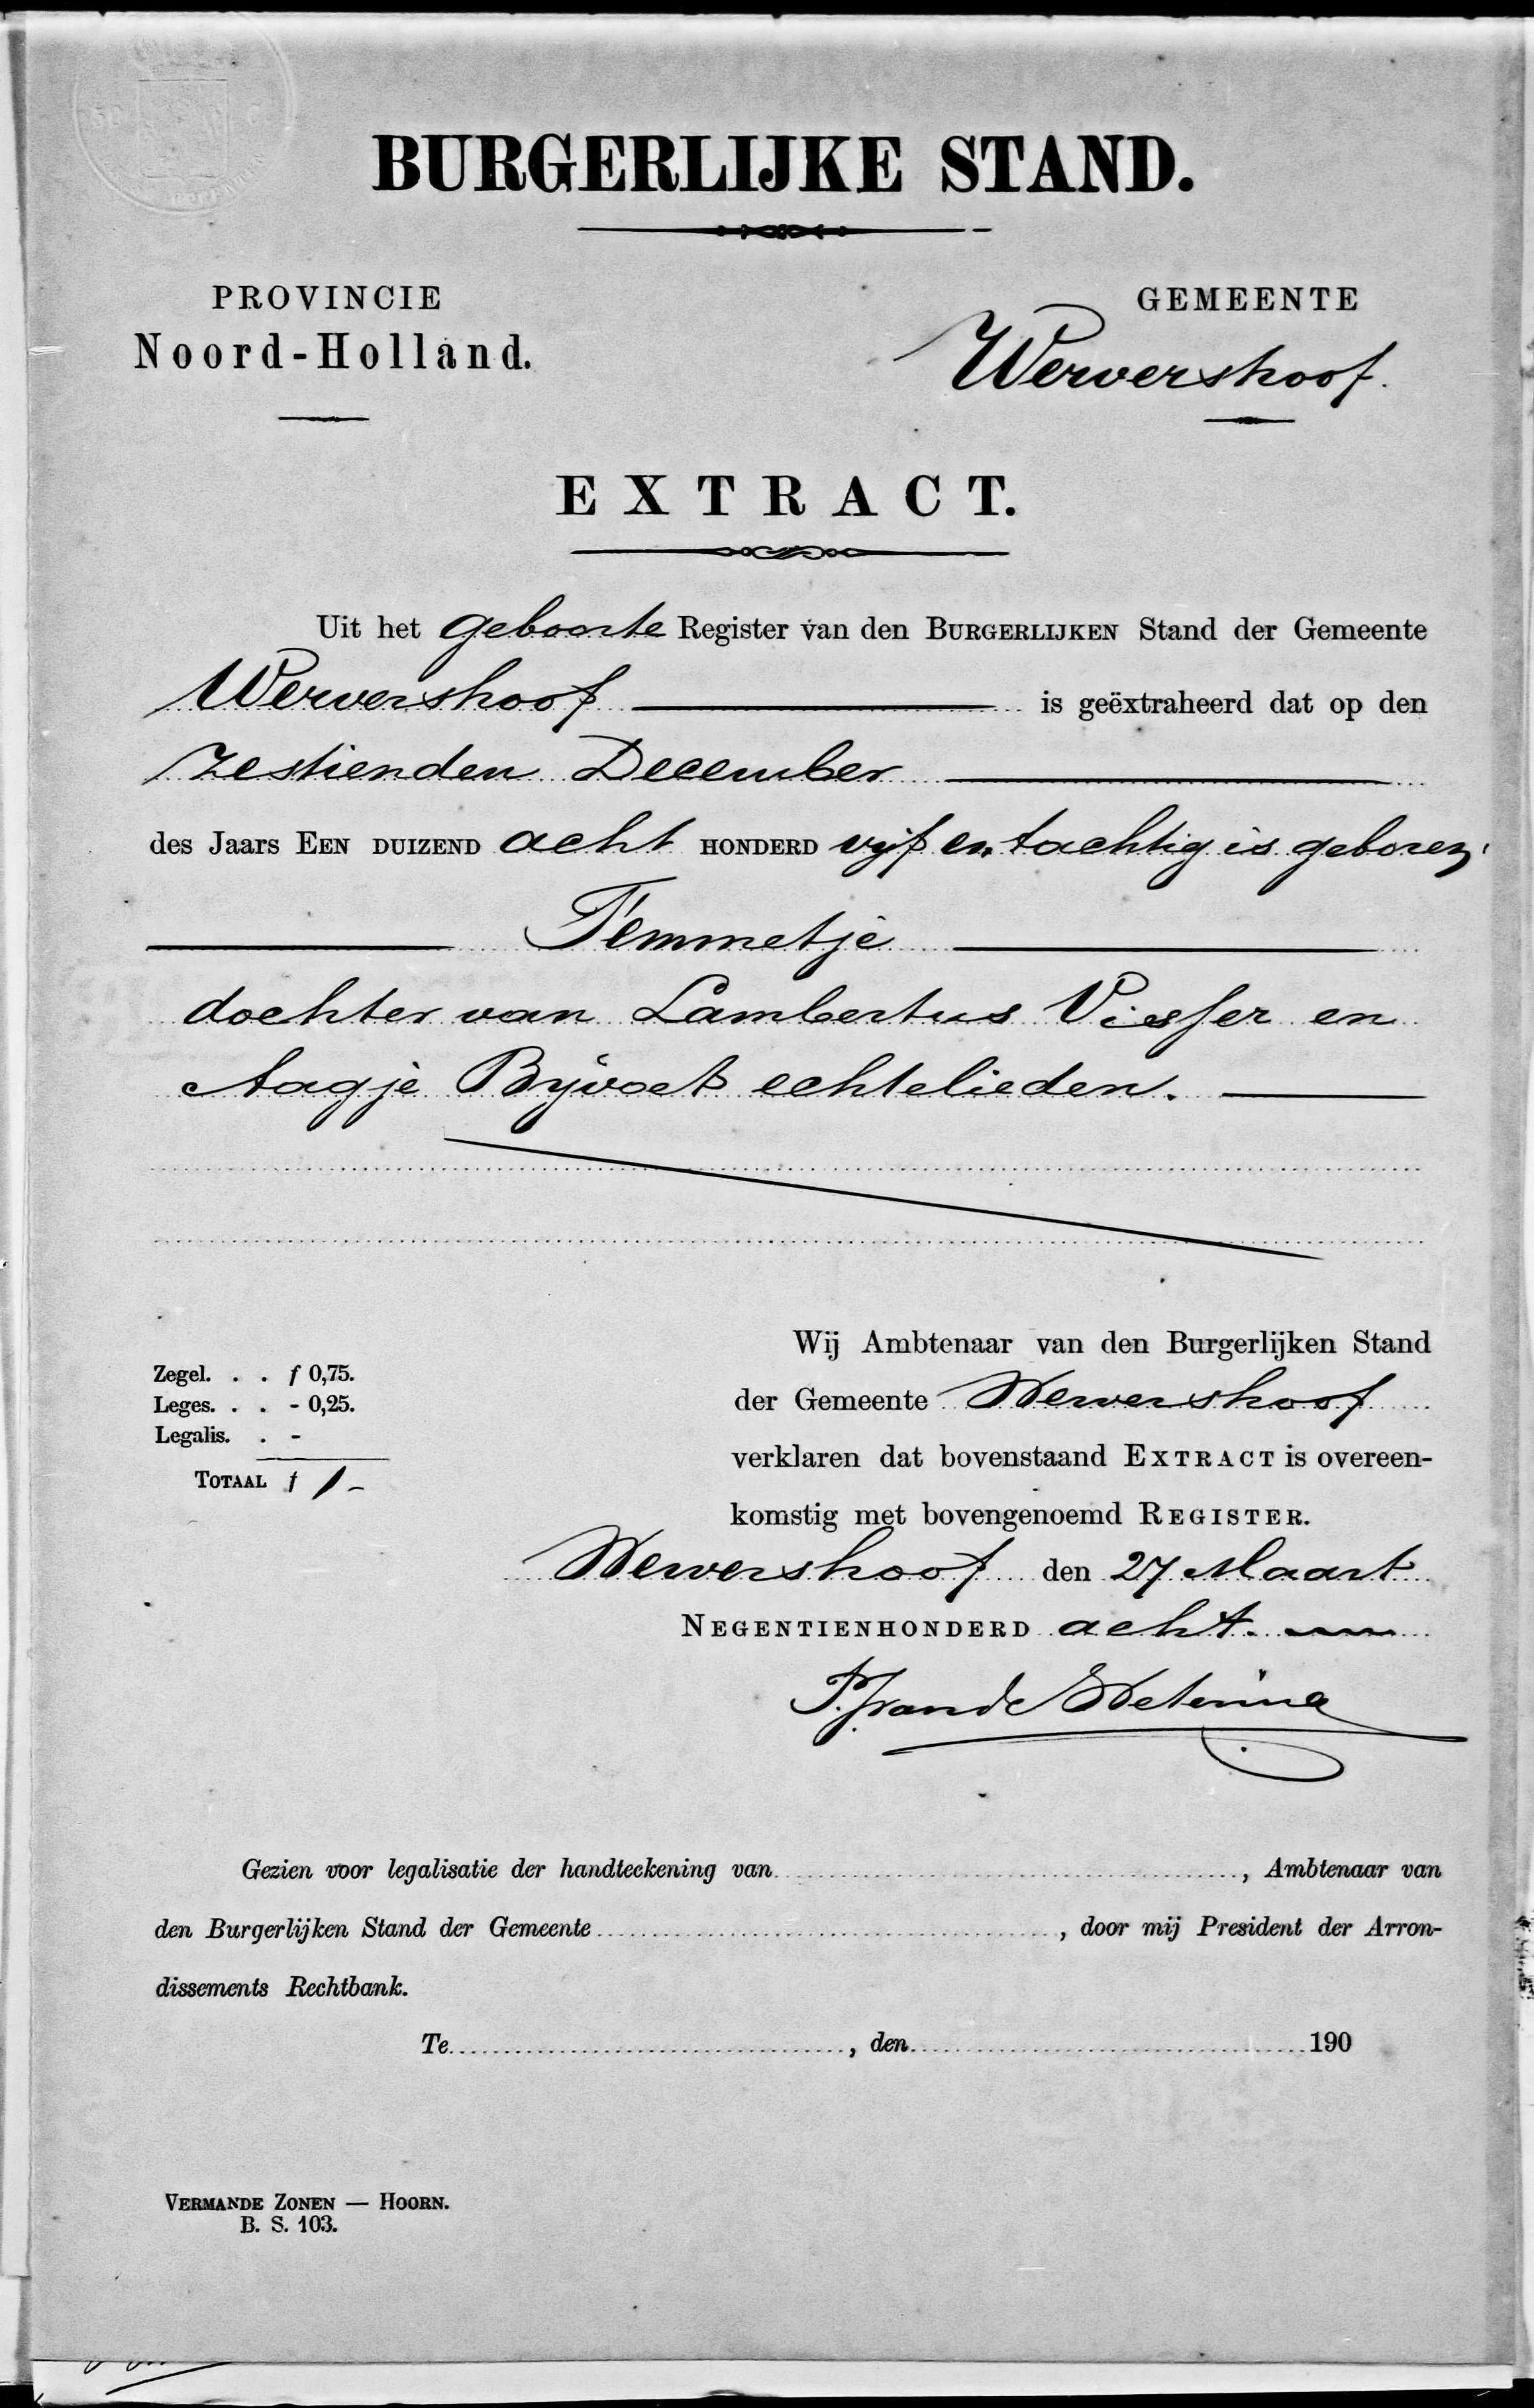 BURGERLIJKE STAND.
PROVINCIE
Noord-Holland.
GEMEENTE
Wervershoof.
EXTRACT.
Uit het geboorte Register van den BURGERLIJKEN Stand der Gemeente
Wervershoof is geëxtraheerd dat op den
zestienden December
des Jaars EEN DUIZEND acht HONDERD vijf en tachtig is geboren,
Femmetje
dochter van Lambertus Visser en
Aagje Bijvoet echtelieden.
Zegel. . . f 0,75.
Leges. . . - 0,25.
Legalis. . -
TOTAAL f 1 -
Wij Ambtenaar van den Burgerlijken Stand
der Gemeente Wervershoof
verklaren dat bovenstaand EXTRACT is overeen-
komstig met bovengenoemd REGISTER.
Wervershoof den 27 Maart
NEGENTIENHONDERD acht.
van de Wetering
Gezien voor legalisatie der handteekening van , Ambtenaar van
den Burgerlijken Stand der Gemeente , door mij President der Arron-
dissements Rechtbank.
Te , den 190
VERMANDE ZONEN — HOORN.
B. S. 103.